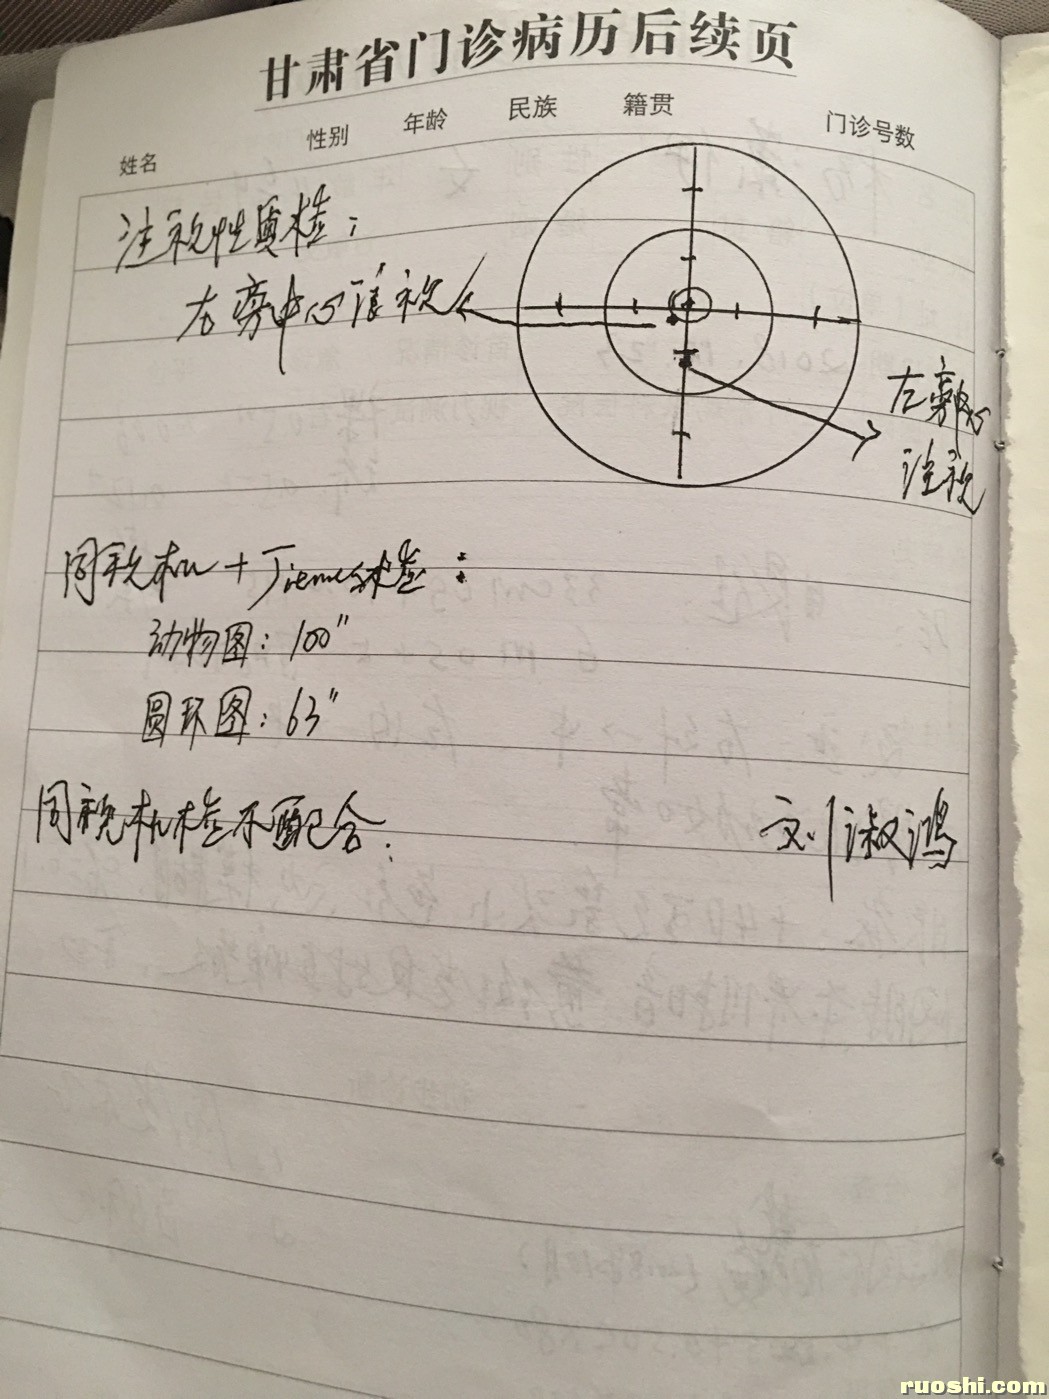 甘肃省门诊病历后续页
姓名 性别 年龄 民族 籍贯 门诊号数
注视性质检:
右旁中心注视
左旁中心
注视
同视机 + 检查:
动物图: 100"
圆环图: 63"
同视机检查不配合.
刘淑鸿
ruoshi.com